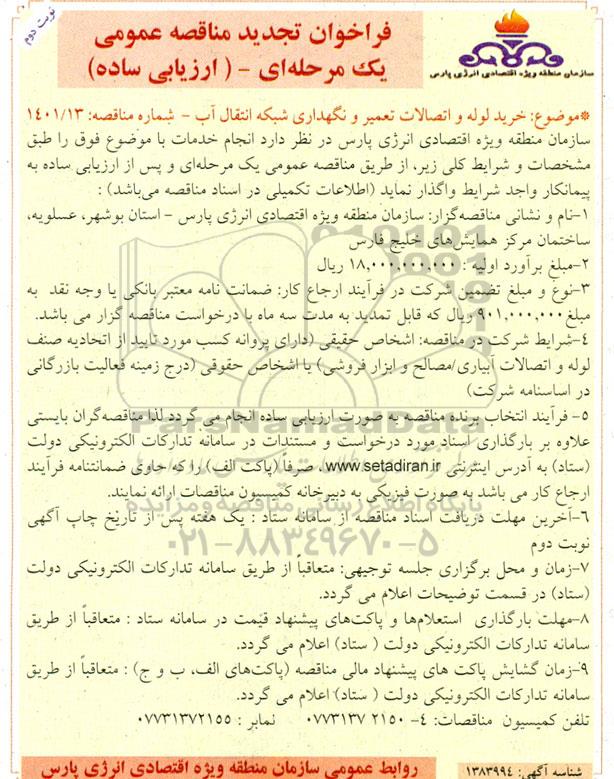 نوبت دوم
فراخوان تجدید مناقصه عمومی
یک مرحله‌ای - ( ارزیابی ساده)
سازمان منطقه ویژه اقتصادی انرژی پارس
*موضوع: خرید لوله و اتصالات تعمیر و نگهداری شبکه انتقال آب - شماره مناقصه: ۱۴۰۱/۱۳
سازمان منطقه ویژه اقتصادی انرژی پارس در نظر دارد انجام خدمات با موضوع فوق را طبق
مشخصات و شرایط کلی زیر، از طریق مناقصه عمومی یک مرحله‌ای و پس از ارزیابی ساده به
پیمانکار واجد شرایط واگذار نماید (اطلاعات تکمیلی در اسناد مناقصه می‌باشد) :
۱-نام و نشانی مناقصه‌گزار: سازمان منطقه ویژه اقتصادی انرژی پارس - استان بوشهر، عسلویه،
ساختمان مرکز همایش‌های خلیج فارس
۲-مبلغ برآورد اولیه : ۱۸,۰۰۰,۰۰۰,۰۰۰ ریال
۳-نوع و مبلغ تضمین شرکت در فرآیند ارجاع کار: ضمانت نامه معتبر بانکی یا وجه نقد به
مبلغ ۹۰۱,۰۰۰,۰۰۰ ریال که قابل تمدید به مدت سه ماه با درخواست مناقصه گزار می باشد.
۴-شرایط شرکت در مناقصه: اشخاص حقیقی (دارای پروانه کسب مورد تایید از اتحادیه صنف
لوله و اتصالات آبیاری/مصالح و ابزار فروشی) یا اشخاص حقوقی (درج زمینه فعالیت بازرگانی
در اساسنامه شرکت)
۵- فرآیند انتخاب برنده مناقصه به صورت ارزیابی ساده انجام می گردد لذا مناقصه‌گران بایستی
علاوه بر بارگذاری اسناد مورد درخواست و مستندات در سامانه تدارکات الکترونیکی دولت
(ستاد) به آدرس اینترنتی www.setadiran.ir ، صرفاً (پاکت الف) را که حاوی ضمانتنامه فرآیند
ارجاع کار می باشد به صورت فیزیکی به دبیرخانه کمیسیون مناقصات ارائه نمایند.
۶-آخرین مهلت دریافت اسناد مناقصه از سامانه ستاد : یک هفته پس از تاریخ چاپ آگهی
نوبت دوم
۷-زمان و محل برگزاری جلسه توجیهی: متعاقباً از طریق سامانه تدارکات الکترونیکی دولت
(ستاد) در قسمت توضیحات اعلام می گردد.
۸-مهلت بارگذاری استعلام‌ها و پاکت‌های پیشنهاد قیمت در سامانه ستاد : متعاقباً از طریق
سامانه تدارکات الکترونیکی دولت ( ستاد) اعلام می گردد.
۹-زمان گشایش پاکت های پیشنهاد مالی مناقصه (پاکت‌های الف، ب و ج) : متعاقباً از طریق
سامانه تدارکات الکترونیکی دولت ( ستاد) اعلام می گردد.
تلفن کمیسیون مناقصات: ۴- ۲۱۵۰ ۰۷۷۳۱۳۷ نمابر : ۰۷۷۳۱۳۷۲۱۵۵
شناسه آگهی: ۱۳۸۳۹۹۴
روابط عمومی سازمان منطقه ویژه اقتصادی انرژی پارس
ParsNamadData
پایگاه اطلاع رسانی مناقصه و مزایده
۰۲۱-۸۸۳۴۹۶۷۰-۵